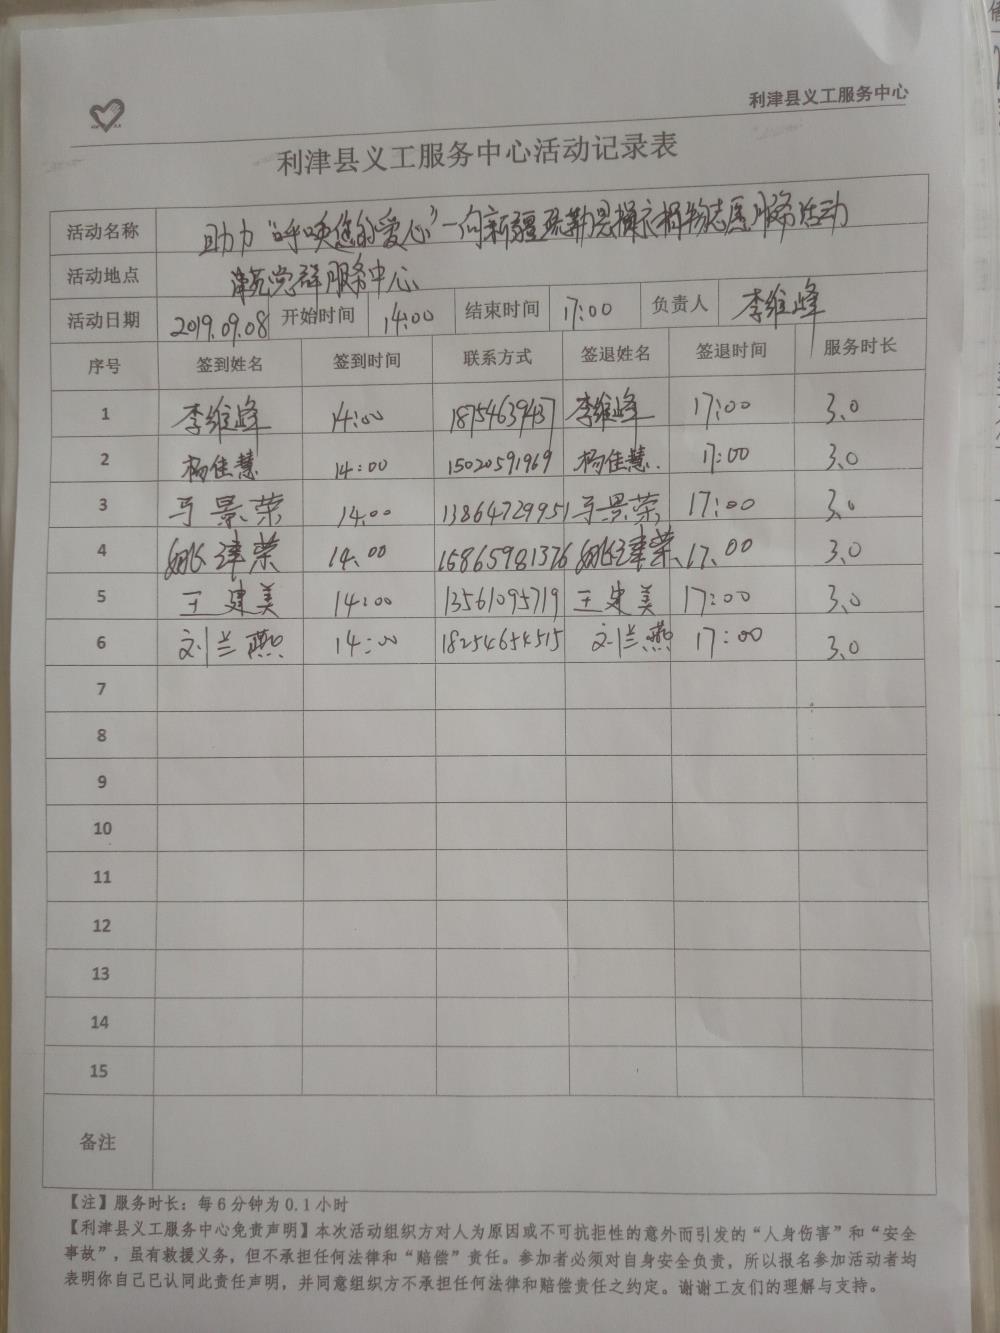 利津县义工服务中心
利津县义工服务中心活动记录表
活动名称 助力“呼唤您的爱心”一向新疆疏勒县捐衣捐物志愿服务活动
活动地点 津苑党群服务中心
活动日期 2019.09.08 开始时间 14:00 结束时间 17:00 负责人 李维峰
序号 签到姓名 签到时间 联系方式 签退姓名 签退时间 服务时长
1 李维峰 14:00 18754639437 李维峰 17:00 3.0
2 杨佳慧 14:00 15020591969 杨佳慧. 17:00 3.0
3 景荣 14:00 13864729951 景荣 17:00 3.0
4 姚津荣 14:00 15865981376 姚津荣 17:00 3.0
5 王建美 14:00 13561095719 王建美 17:00 3.0
6 刘兰燕 14:00 18254654515 刘兰燕 17:00 3.0
7
8
9
10
11
12
13
14
15
备注
【注】服务时长：每6分钟为0.1小时
【利津县义工服务中心免责声明】本次活动组织方对人为原因或不可抗拒性的意外而引发的“人身伤害”和“安全
事故”，虽有救援义务，但不承担任何法律和“赔偿”责任。参加者必须对自身安全负责，所以报名参加活动者均
表明你自己已认同此责任声明，并同意组织方不承担任何法律和赔偿责任之约定。谢谢工友们的理解与支持。